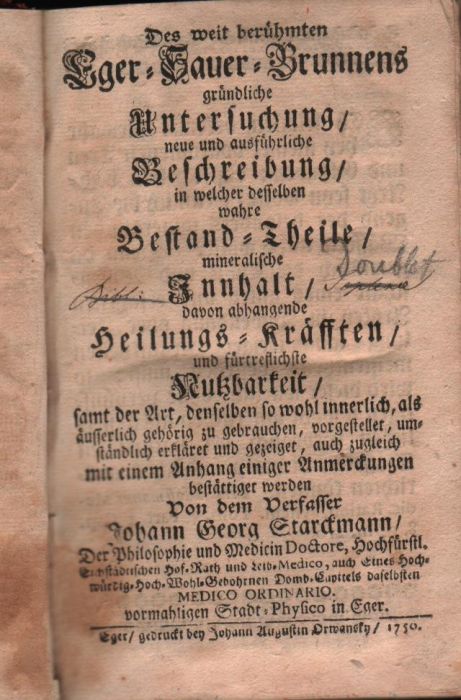 Des weit berühmten
Eger-Sauer-Brunnens
gründliche
Untersuchung/
neue und ausführliche
Beschreibung/
in welcher desselben
wahre
Bestand-Theile/
mineralische
Doublet
Bibl:
Innhalt/
davon abhangende
Heilungs-Kräfften/
und fürtreflichste
Nutzbarkeit/
samt der Art, denselben so wohl innerlich, als
äusserlich gehörig zu gebrauchen, vorgestellet, um-
ständlich erkläret und gezeiget, auch zugleich
mit einem Anhang einiger Anmerckungen
bestättiget werden
Von dem Verfasser
Johann Georg Starckmann/
Der Philosophie und Medicin Doctore, Hochfürstl.
Eichstädtischen Hof-Rath und Leib-Medico, auch Eines Hoch-
würdig-Hoch-Wohl-Gebohrnen Domb-Capitels daselbsten
MEDICO ORDINARIO.
vormahligen Stadt-Physico in Eger.
Eger/ gedruckt bey Johann Augustin Orwansky/ 1750.